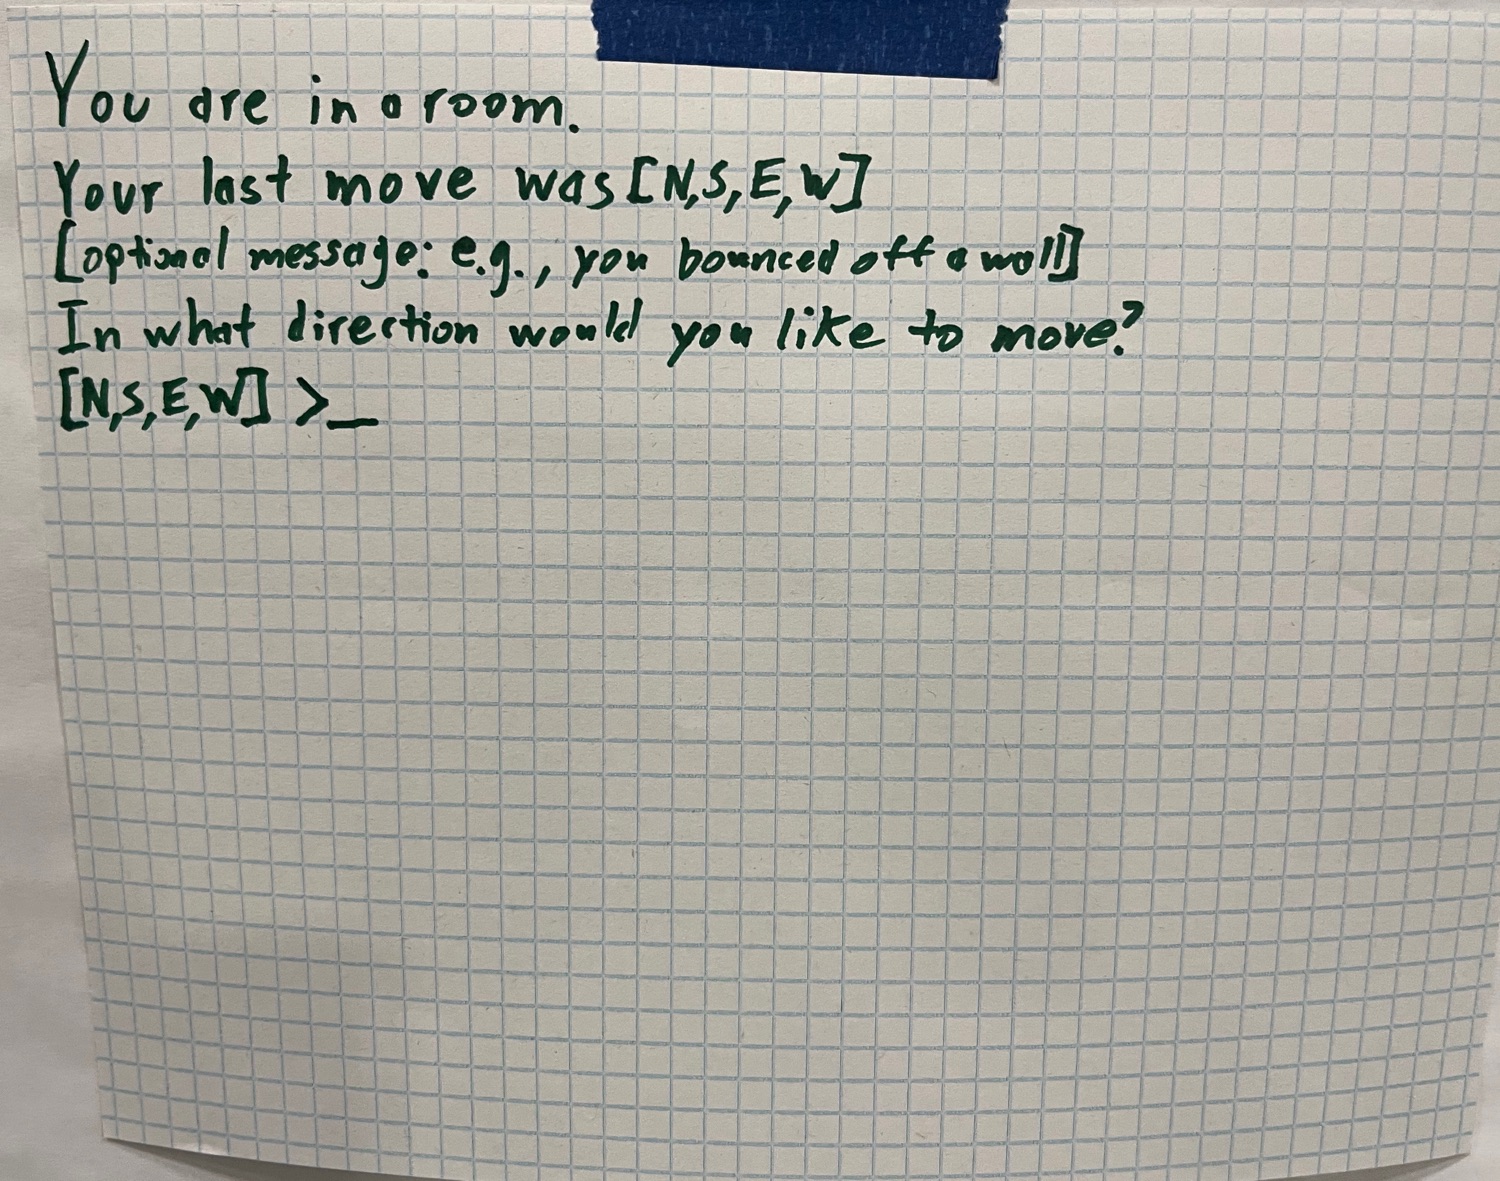 You are in a room.
Your last move was [N,S,E,W]
[optional message: e.g., you bounced off a wall]
In what direction would you like to move?
[N,S,E,W] >_